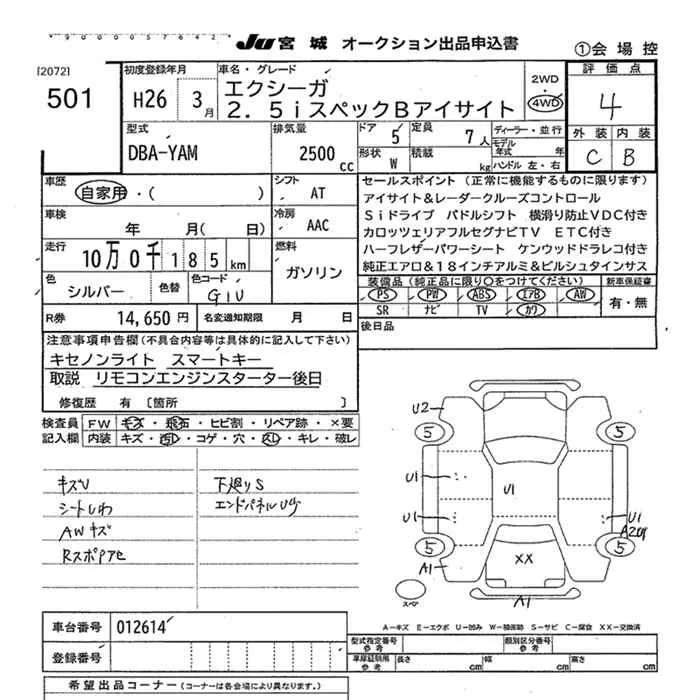 JU 宮城 オークション出品申込書
①会場控
[2072]
501
初度登録年月
H26 3月
車名・グレード
エクシーガ
2.5iスペックBアイサイト
2WD
・
4WD
評価点
4
外装 内装
C B
型式
DBA-YAM
排気量
2500cc
ドア 5
定員 7人
ディーラー・並行
モデル年式 年
形状 W
積載 kg
ハンドル 左・右
車歴
自家用・( )
シフト AT
車検
年 月( 日)
冷房 AAC
走行
10万0千185km
燃料
ガソリン
色
シルバー
色替
色コード
G1U
R券 14,650円
名変通知期限 月 日
セールスポイント(正常に機能するものに限ります)
アイサイト&レーダークルーズコントロール
Siドライブ パドルシフト 横滑り防止VDC付き
カロッツェリアフルセグナビTV ETC付き
ハーフレザーパワーシート ケンウッドドラレコ付き
純正エアロ&18インチアルミ&ビルシュタインサス
装備品(純正品に限り○をつけてください)
新車保証書
PS PW ABS エアB AW
SR ナビ TV カワ
有・無
後日品
注意事項申告欄(不具合内容等は具体的に記入して下さい)
キセノンライト スマートキー
取説 リモコンエンジンスターター後日
修復歴 有 [箇所 ]
検査員記入欄
FW キズ・飛石・ヒビ割・リペア跡・×要
内装 キズ・汚レ・コゲ・穴・スレ・キレ・破レ
キズU
シートしわ
AWキズ
下廻りS
U2
5
5
U1
U1
U1
U1
5
5
A1
XX
A1
スペア
A-キズ E-エクボ U-凹み W-補修跡 S-サビ C-腐食 XX-交換済
車台番号 012614
登録番号
型式指定番号 参考
類別区分番号 参考
長さ cm
幅 cm
高さ cm
希望出品コーナー(コーナーは各会場により異なります。)